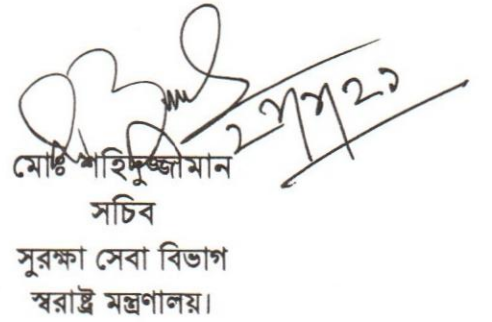 মোঃ শহিদুজ্জামান
সচিব
সুরক্ষা সেবা বিভাগ
স্বরাষ্ট্র মন্ত্রণালয়।